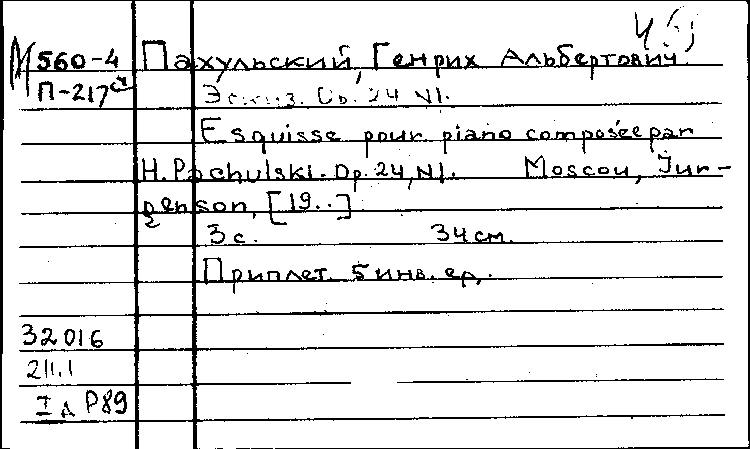 М 560-4 Пахульский, Генрих Альбертович.
П-217
Эскиз. Op. 24 N1.
Esquisse pour piano composée par
H. Pachulski. Op. 24, N1. Moscou, Jur-
genson, [19..]
3 с. 34 см.
Приплет. 5 инв. ед.
32016
211.1
I д P89